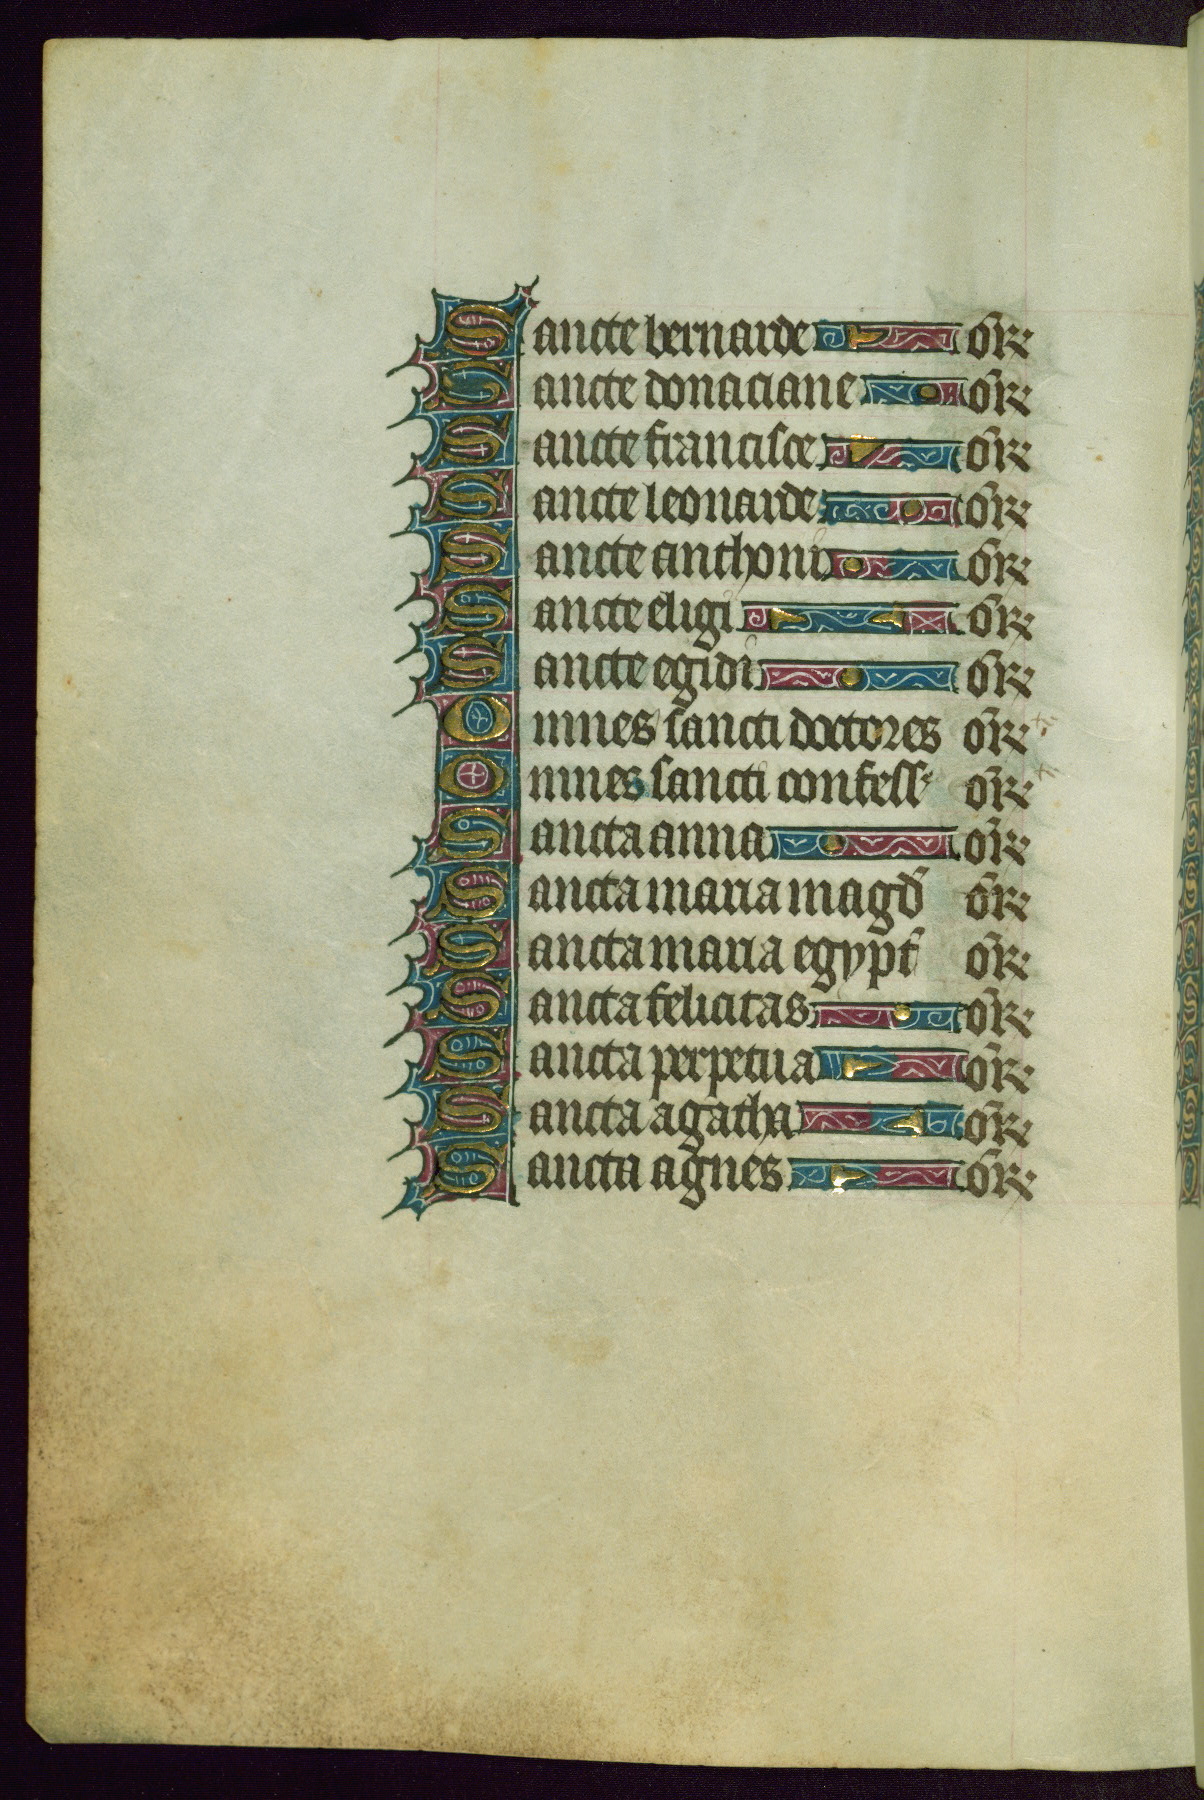 Sancte bernarde or
Sancte donaciane or
Sancte francisce or
Sancte leonarde or
Sancte anthoni or
Sancte eligi or
Sancte egidi or
Omnes sancti doctores or
Omnes sancti confess or
Sancta anna or
Sancta maria magd or
Sancta maria egypt or
Sancta felicitas or
Sancta perpetua or
Sancta agatha or
Sancta agnes or